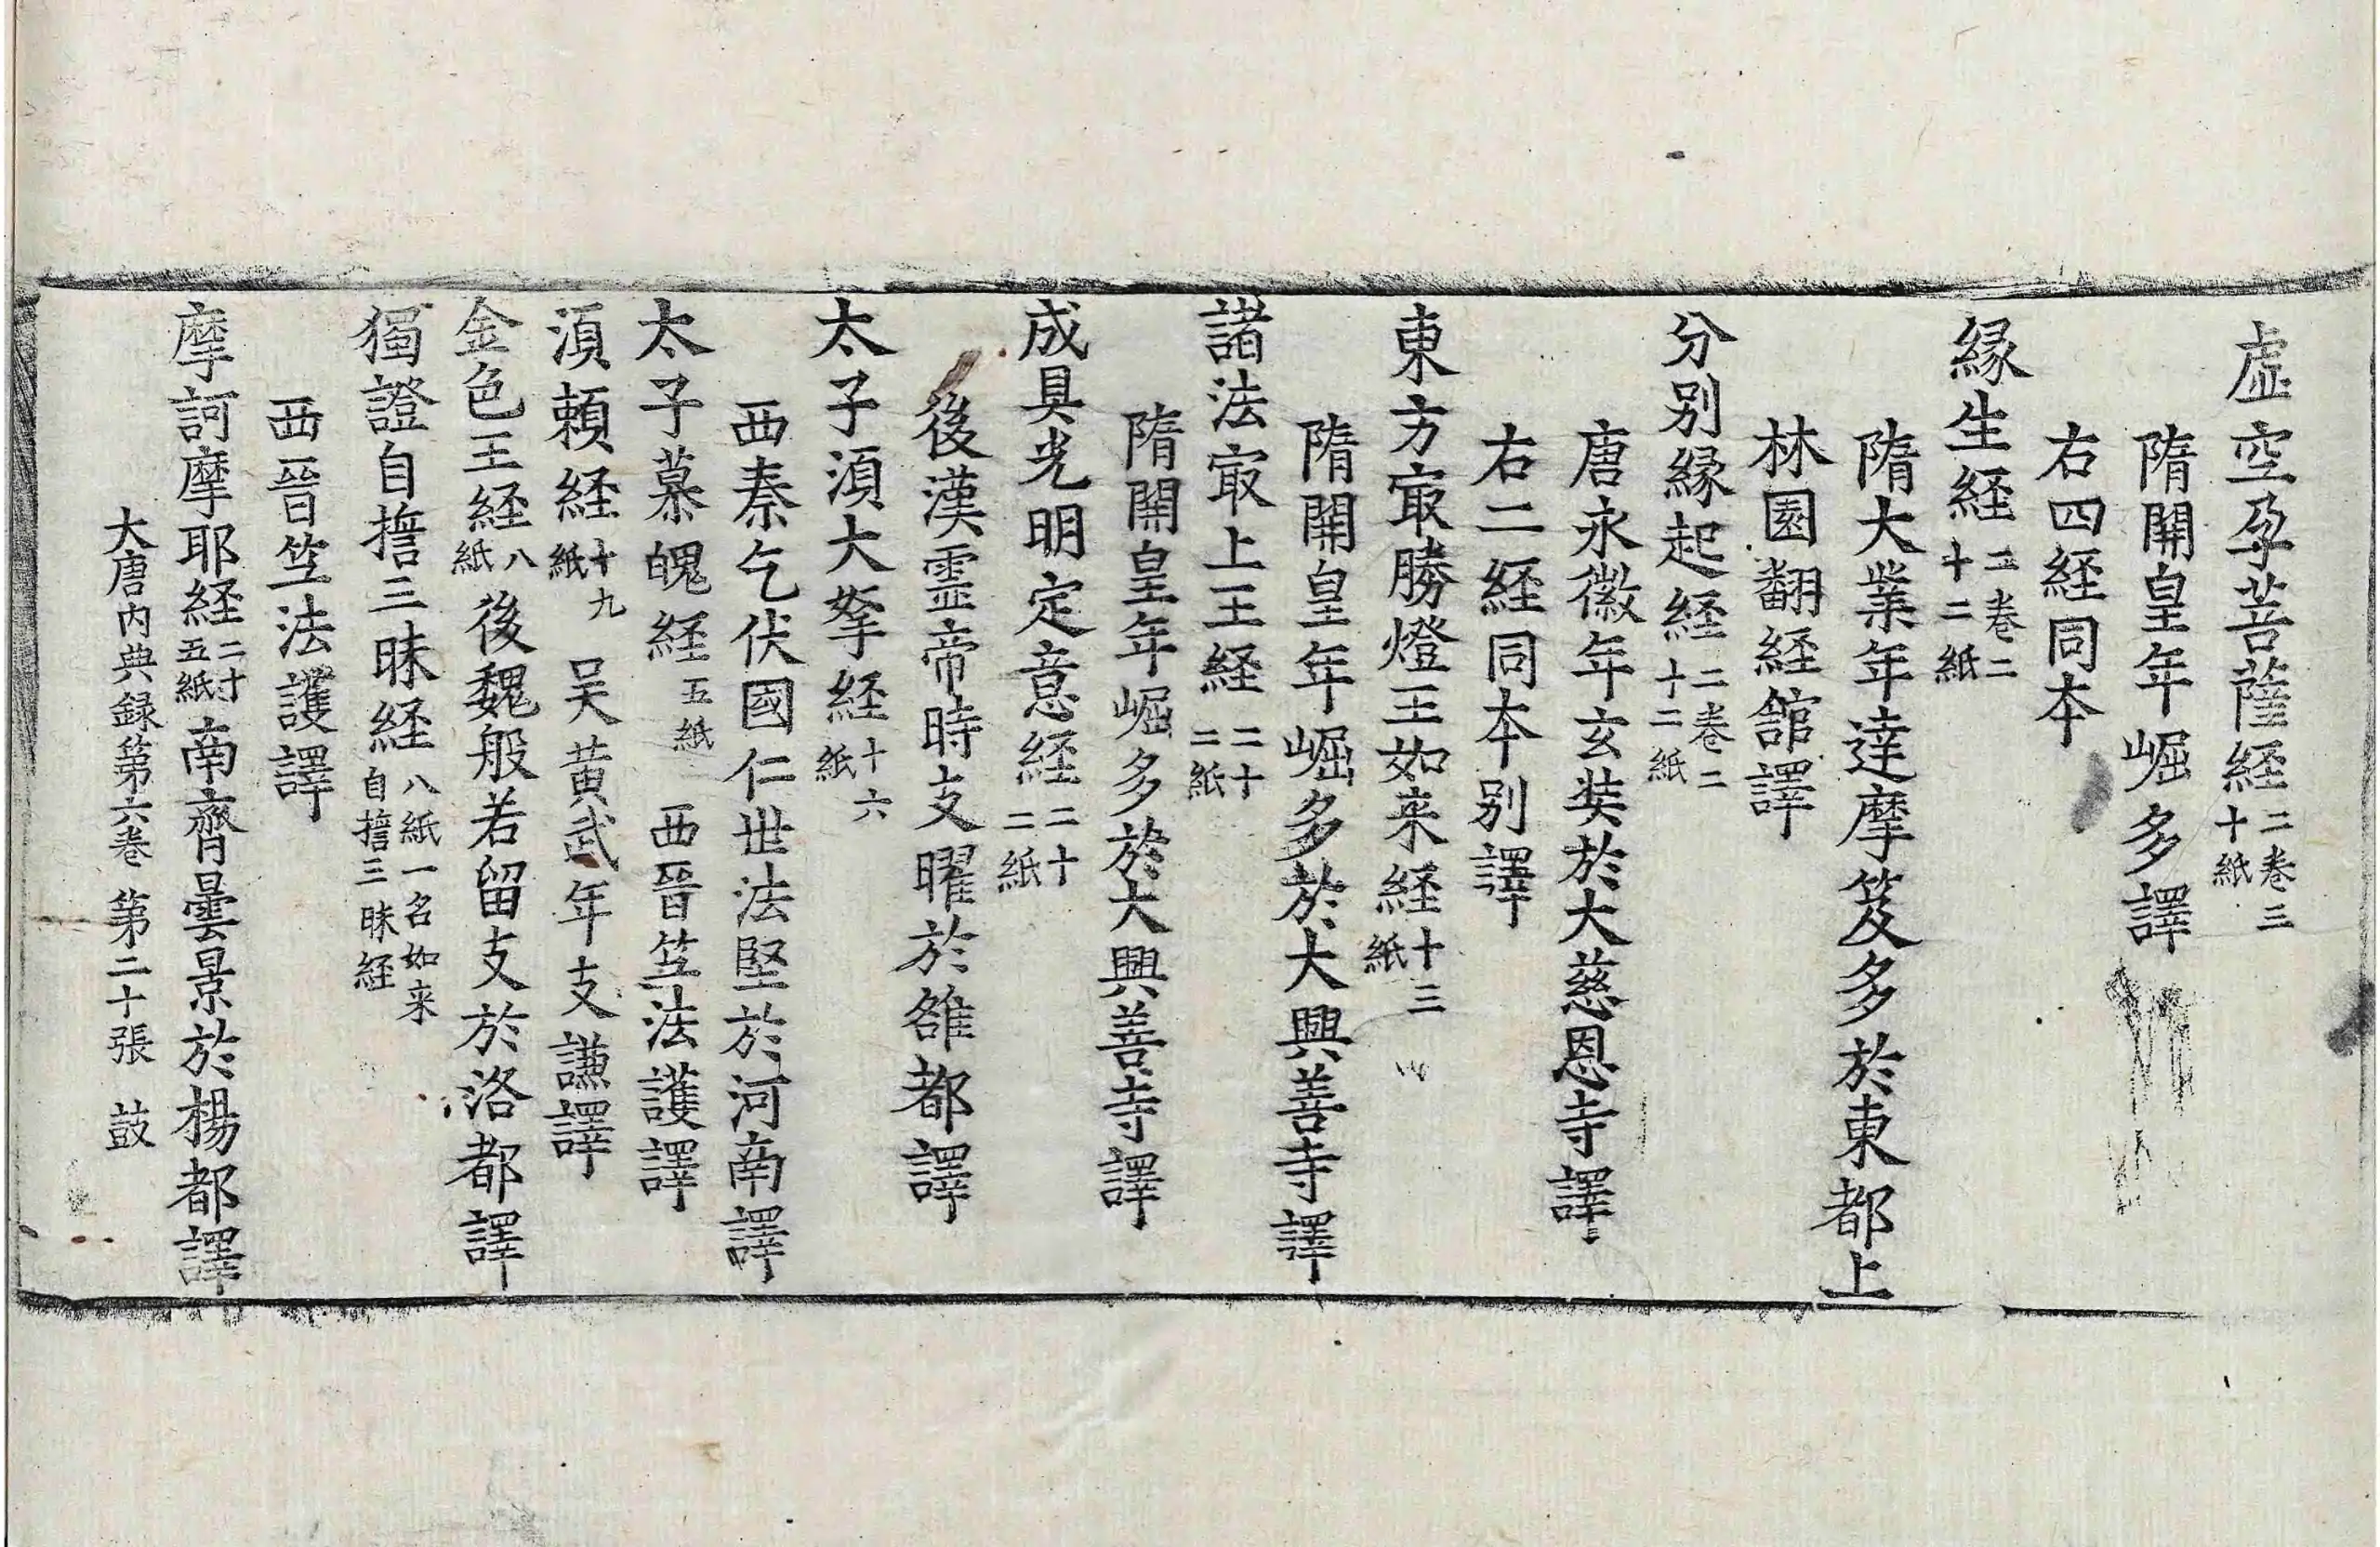 虛空孕菩薩経二巻三十紙
隋開皇年崛多譯
右四経同本
縁生経二巻二十二紙
隋大業年達摩笈多於東都上
林園翻経舘譯
分别縁起経二巻二十二紙
唐永徽年玄奘於大慈恩寺譯
右二経同本别譯
東方㝡勝燈王如来経十三紙
隋開皇年崛多於大興善寺譯
諸法㝡上王経二十二紙
隋開皇年崛多於大興善寺譯
成具光明定意経二十二紙
後漢霊帝時支曜於雒都譯
太子湏大拏経十六紙
西秦乞伏國仁世法堅於河南譯
太子慕魄経五紙 西晉竺法護譯
湏頼経十九紙 吴黄武年支謙譯
金色王経八紙後魏般若留支於洛都譯
獨證自擔三昧経八紙一名如来自擔三昧経
西晉竺法護譯
摩訶摩耶経二十五紙南齊曇景於楊都譯
大唐内典録第六巻 第二十張 鼓